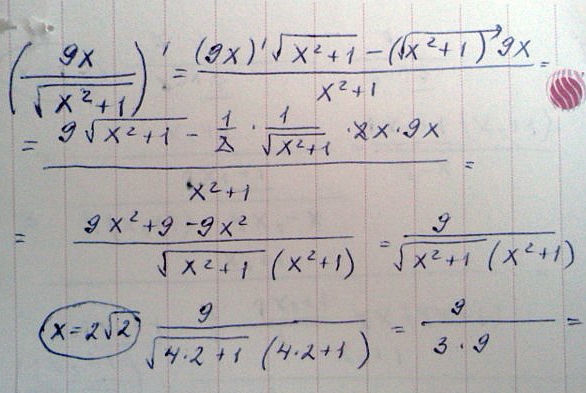 (9x/√(x²+1))' = ((9x)'√(x²+1) - (√(x²+1))'9x)/(x²+1) =
= (9√(x²+1) - 1/2 · 1/√(x²+1) · 2x · 9x)/(x²+1) =
= (9x²+9-9x²)/(√(x²+1) (x²+1)) = 9/(√(x²+1) (x²+1))
x=2√2 9/(√(4·2+1) (4·2+1)) = 9/(3·9) =